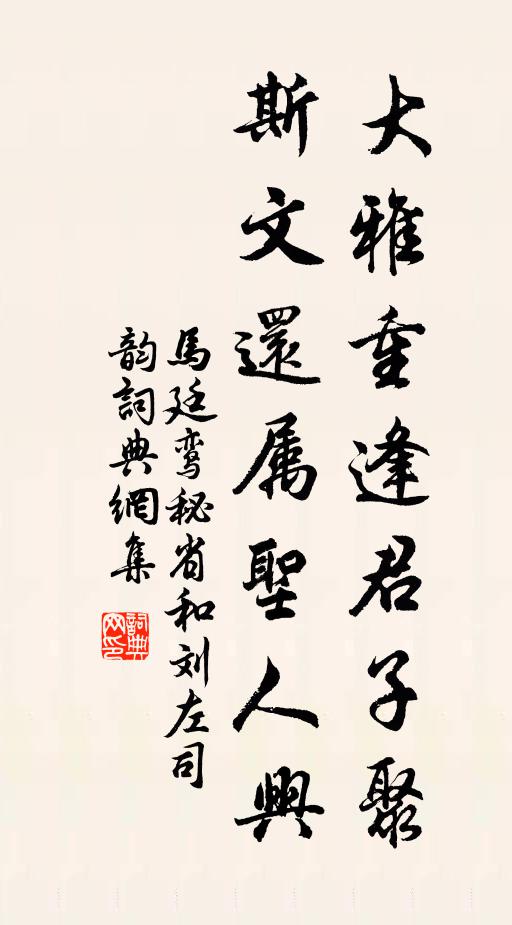 大雅重逢君子聚
斯文還属聖人興
馬廷鸾秘省和刘左司
韵詞典網集
詞典网印